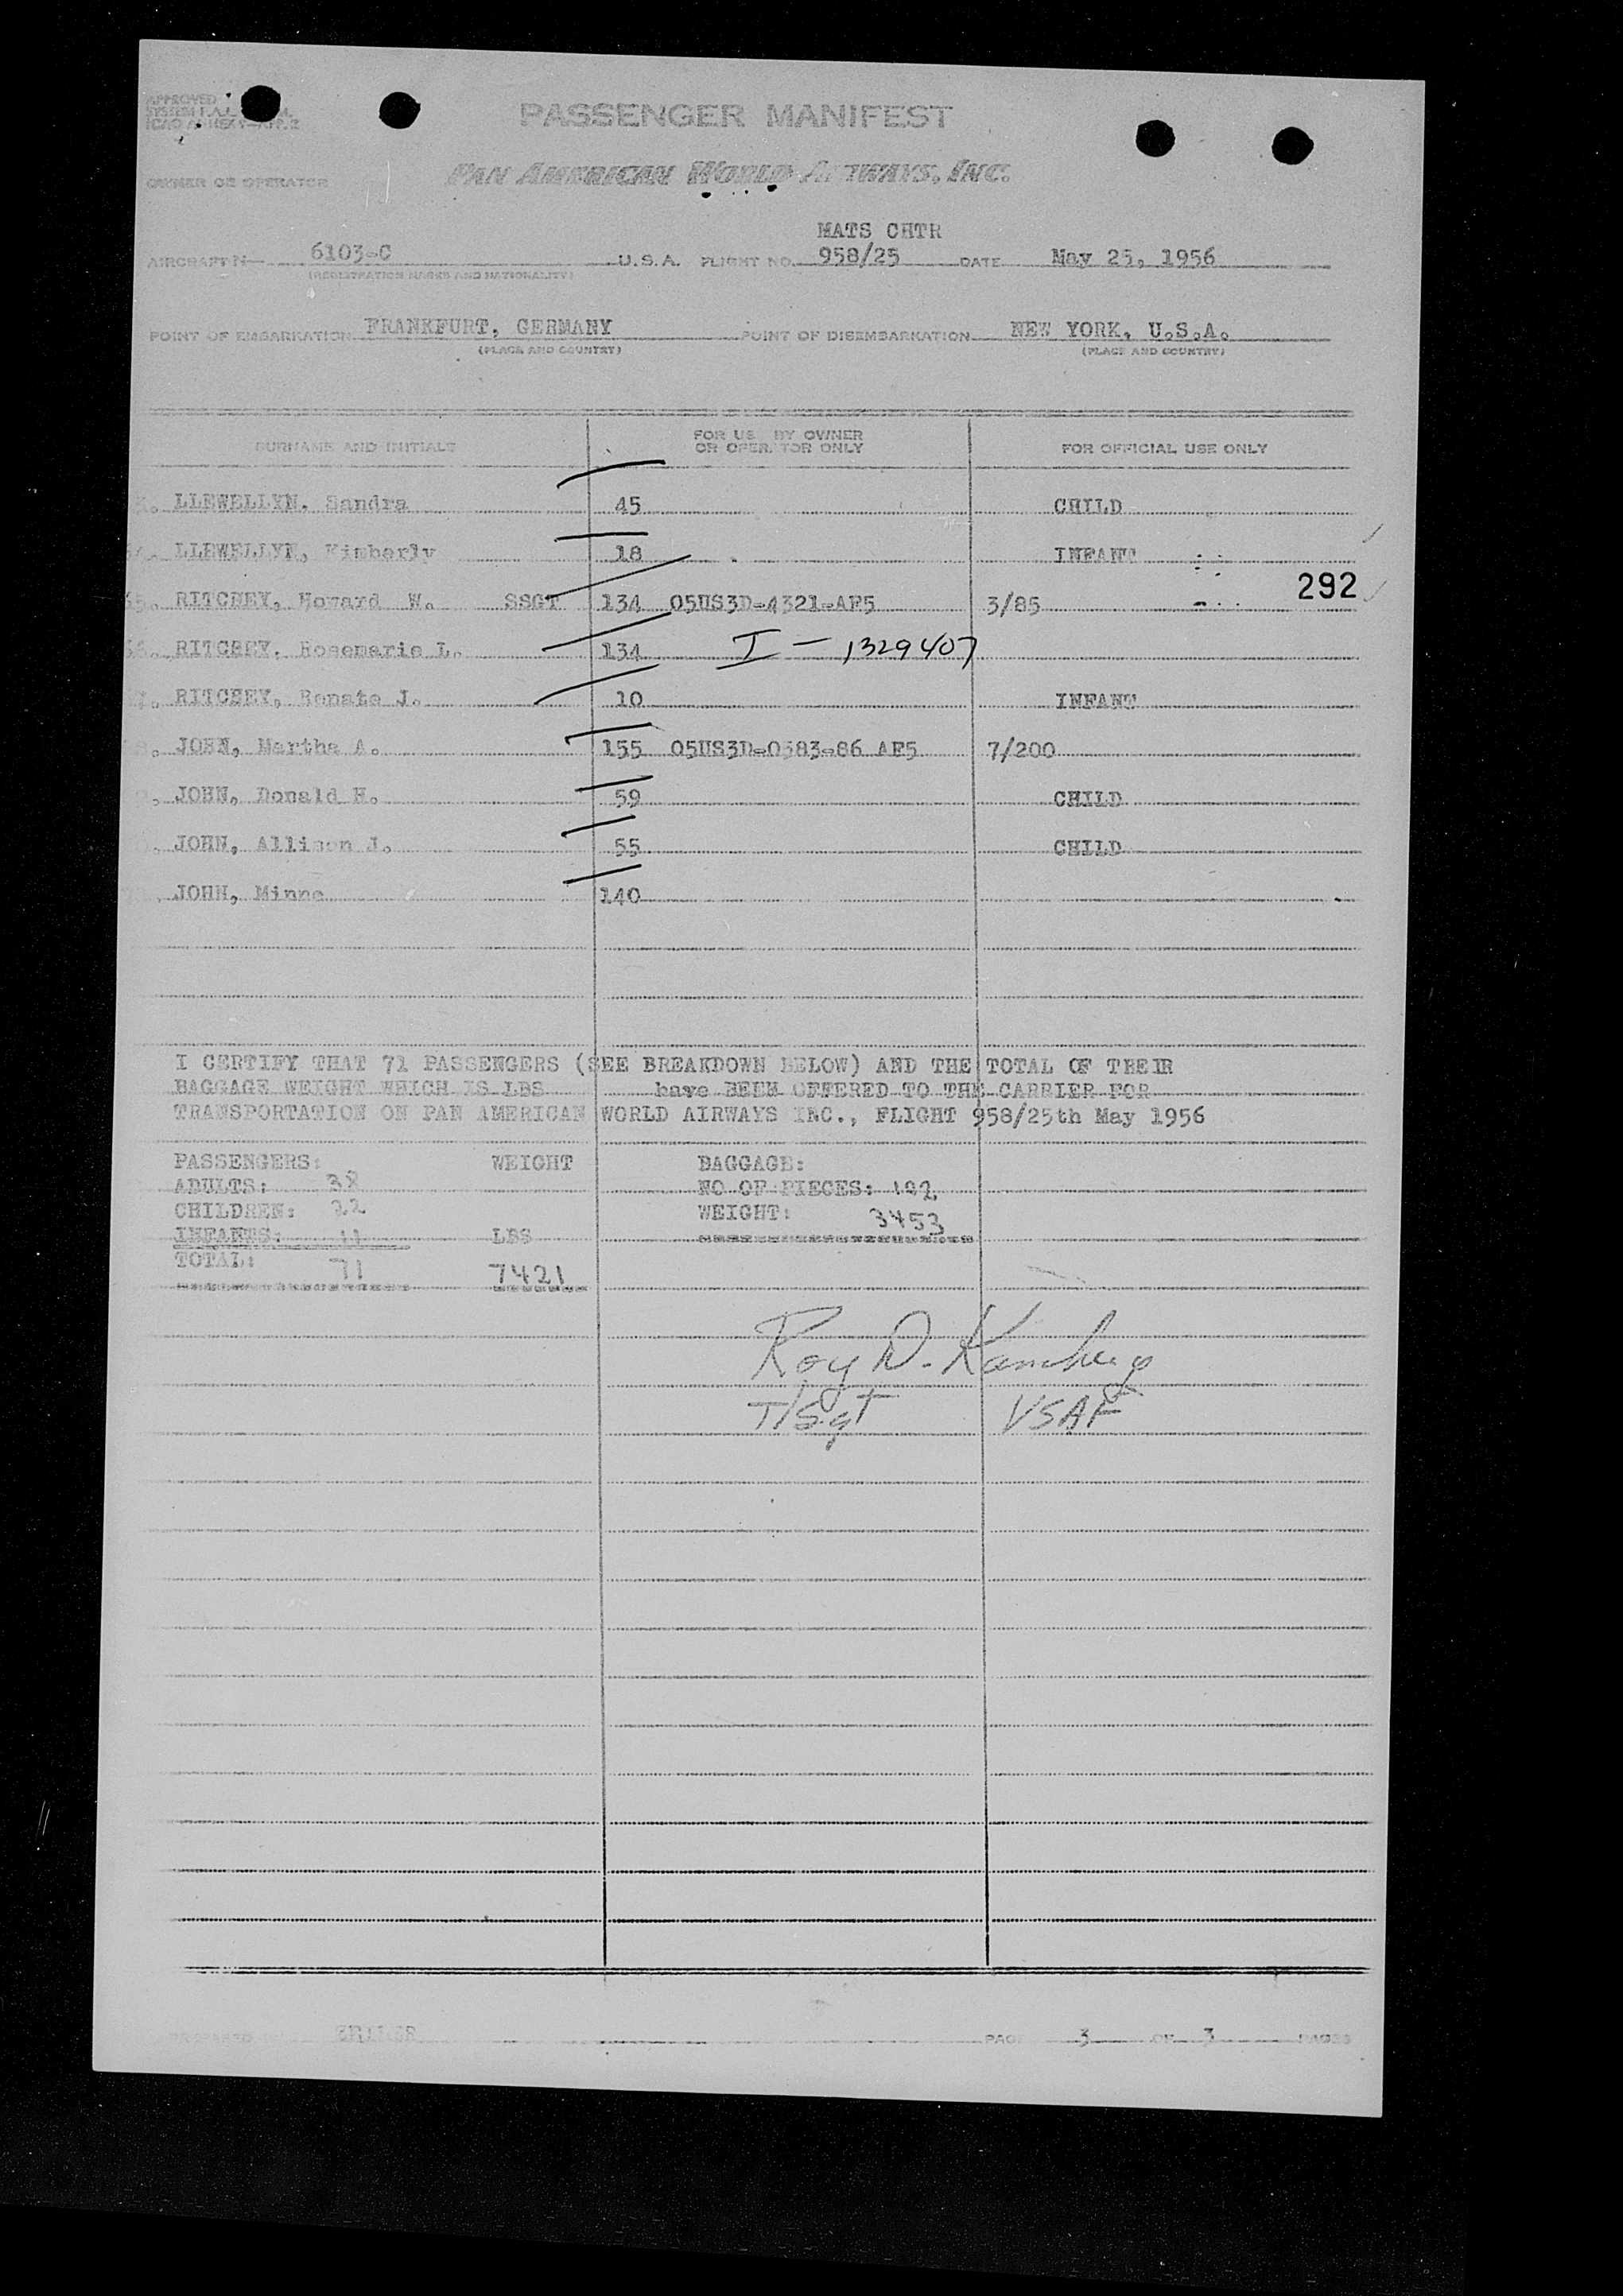 APPROVED
PASSENGER MANIFEST
OWNER OR OPERATOR PAN AMERICAN WORLD AIRWAYS, INC.
MATS CHTR
AIRCRAFT N— 6103-C U.S.A. FLIGHT NO. 958/25 DATE May 25, 1956
(REGISTRATION MARKS AND NATIONALITY)
POINT OF EMBARKATION FRANKFURT, GERMANY POINT OF DISEMBARKATION NEW YORK, U.S.A.
(PLACE AND COUNTRY) (PLACE AND COUNTRY)
SURNAME AND INITIALS FOR US BY OWNER OR OPER TOR ONLY FOR OFFICIAL USE ONLY
LLEWELLYN, Sandra 45 CHILD
LLEWELLYN, Kimberly 18 INFANT
292
RITCHEY, Howard W. SSGT 134 05US3D-4321-AF5 3/85
RITCHEY, Rosemarie L. 134 I - 1329407
RITCHEY, Renate J. 10 INFANT
JOHN, Martha A. 155 05US3D-0383-86 AF5 7/200
JOHN, Donald H. 59 CHILD
JOHN, Allison J. 55 CHILD
JOHN, Minna 140
I CERTIFY THAT 71 PASSENGERS (SEE BREAKDOWN BELOW) AND THE TOTAL OF THEIR
BAGGAGE WEIGHT WHICH IS LBS have BEEN OFFERED TO THE CARRIER FOR
TRANSPORTATION ON PAN AMERICAN WORLD AIRWAYS INC., FLIGHT 958/25th May 1956
PASSENGERS: WEIGHT BAGGAGE:
ADULTS: 38 NO OF PIECES:
CHILDREN: 22 WEIGHT: 3453
INFANTS: 11 LBS
TOTAL: 71 7421
Roy D.
T/Sgt USAF
PAGE 3 OF 3 PAGES